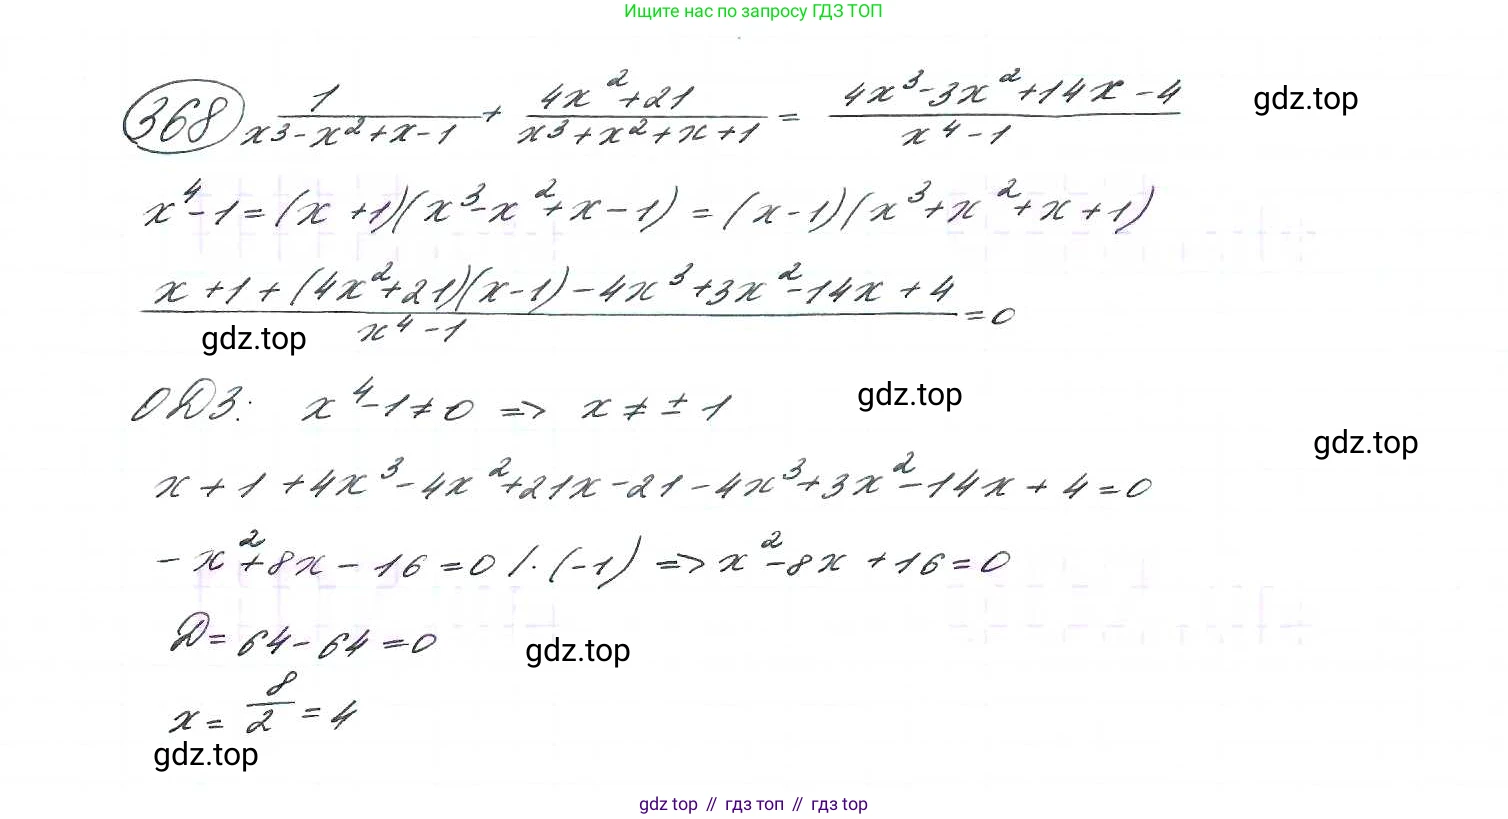 Ищите нас по запросу ГДЗ ТОП
368 1/(x³-x²+x-1) + (4x²+21)/(x³+x²+x+1) = (4x³-3x²+14x-4)/(x⁴-1) gdz.top
x⁴-1=(x+1)(x³-x²+x-1)=(x-1)(x³+x²+x+1)
(x+1+(4x²+21)(x-1)-4x³+3x²-14x+4)/(x⁴-1)=0
gdz.top
ОДЗ: x⁴-1≠0 => x≠±1 gdz.top
gdz.top
x+1+4x³-4x²+21x-21-4x³+3x²-14x+4=0
-x²+8x-16=0 /·(-1) => x²-8x+16=0
Д=64-64=0 gdz.top
x=8/2=4
gdz.top
gdz top // гдз топ // гдз top